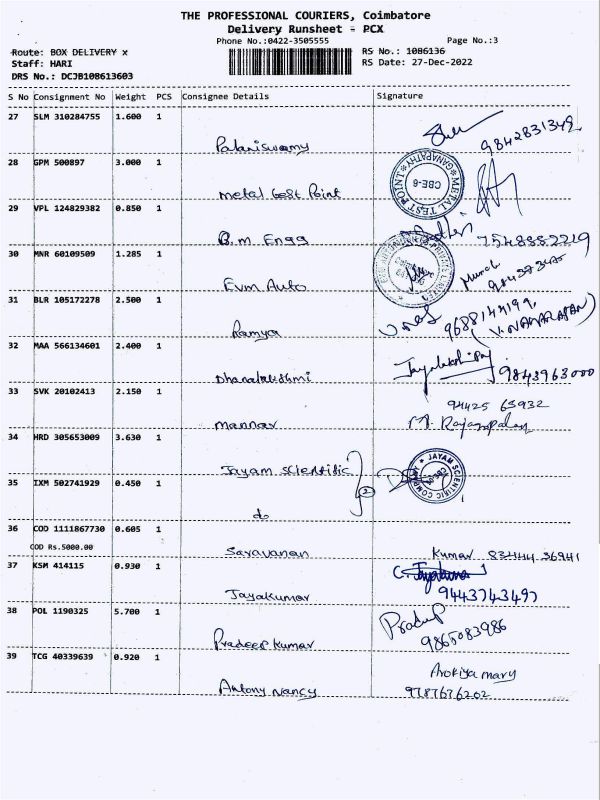 THE PROFESSIONAL COURIERS, Coimbatore
Delivery Runsheet = PCX
Phone No.:0422-3505555
Page No.:3
Route: BOX DELIVERY x
RS No.: 1086136
Staff: HARI
RS Date: 27-Dec-2022
DRS No.: DCJB108613603
S No Consignment No Weight PCS Consignee Details Signature
27 SLM 310284755 1.600 1
Palaniswamy 9842831349
28 GPM 500897 3.000 1
METAL TEST POINT
GANAPATHY
CBE-6
Metal test Point
29 VPL 124829382 0.850 1
B.m. Engg 7548882219
30 MNR 60109509 1.285 1
Evm Auto
31 BLR 105172278 2.500 1
Ramya 9688144199,
32 MAA 566134601 2.400 1
Dhanalakshmi 9843963000
33 SVK 20102413 2.150 1
94425 65932
mannar M. Rajagopalan
34 HRD 305653009 3.630 1
Jayam Scientific
JAYAM SCIENTIFIC COMPANY
35 IXM 502741929 0.450 1
2
do
36 COD 1111867730 0.605 1
COD Rs.5000.00
Saravanan Kumar 83444 36941
37 KSM 414115 0.930 1
C. Jayakumar
Jayakumar 9443743497
38 POL 1190325 5.700 1
Pradeep
Pradeep Kumar 9865083986
39 TCG 40339639 0.920 1
Arokiya mary
Antony Nancy 9787676202